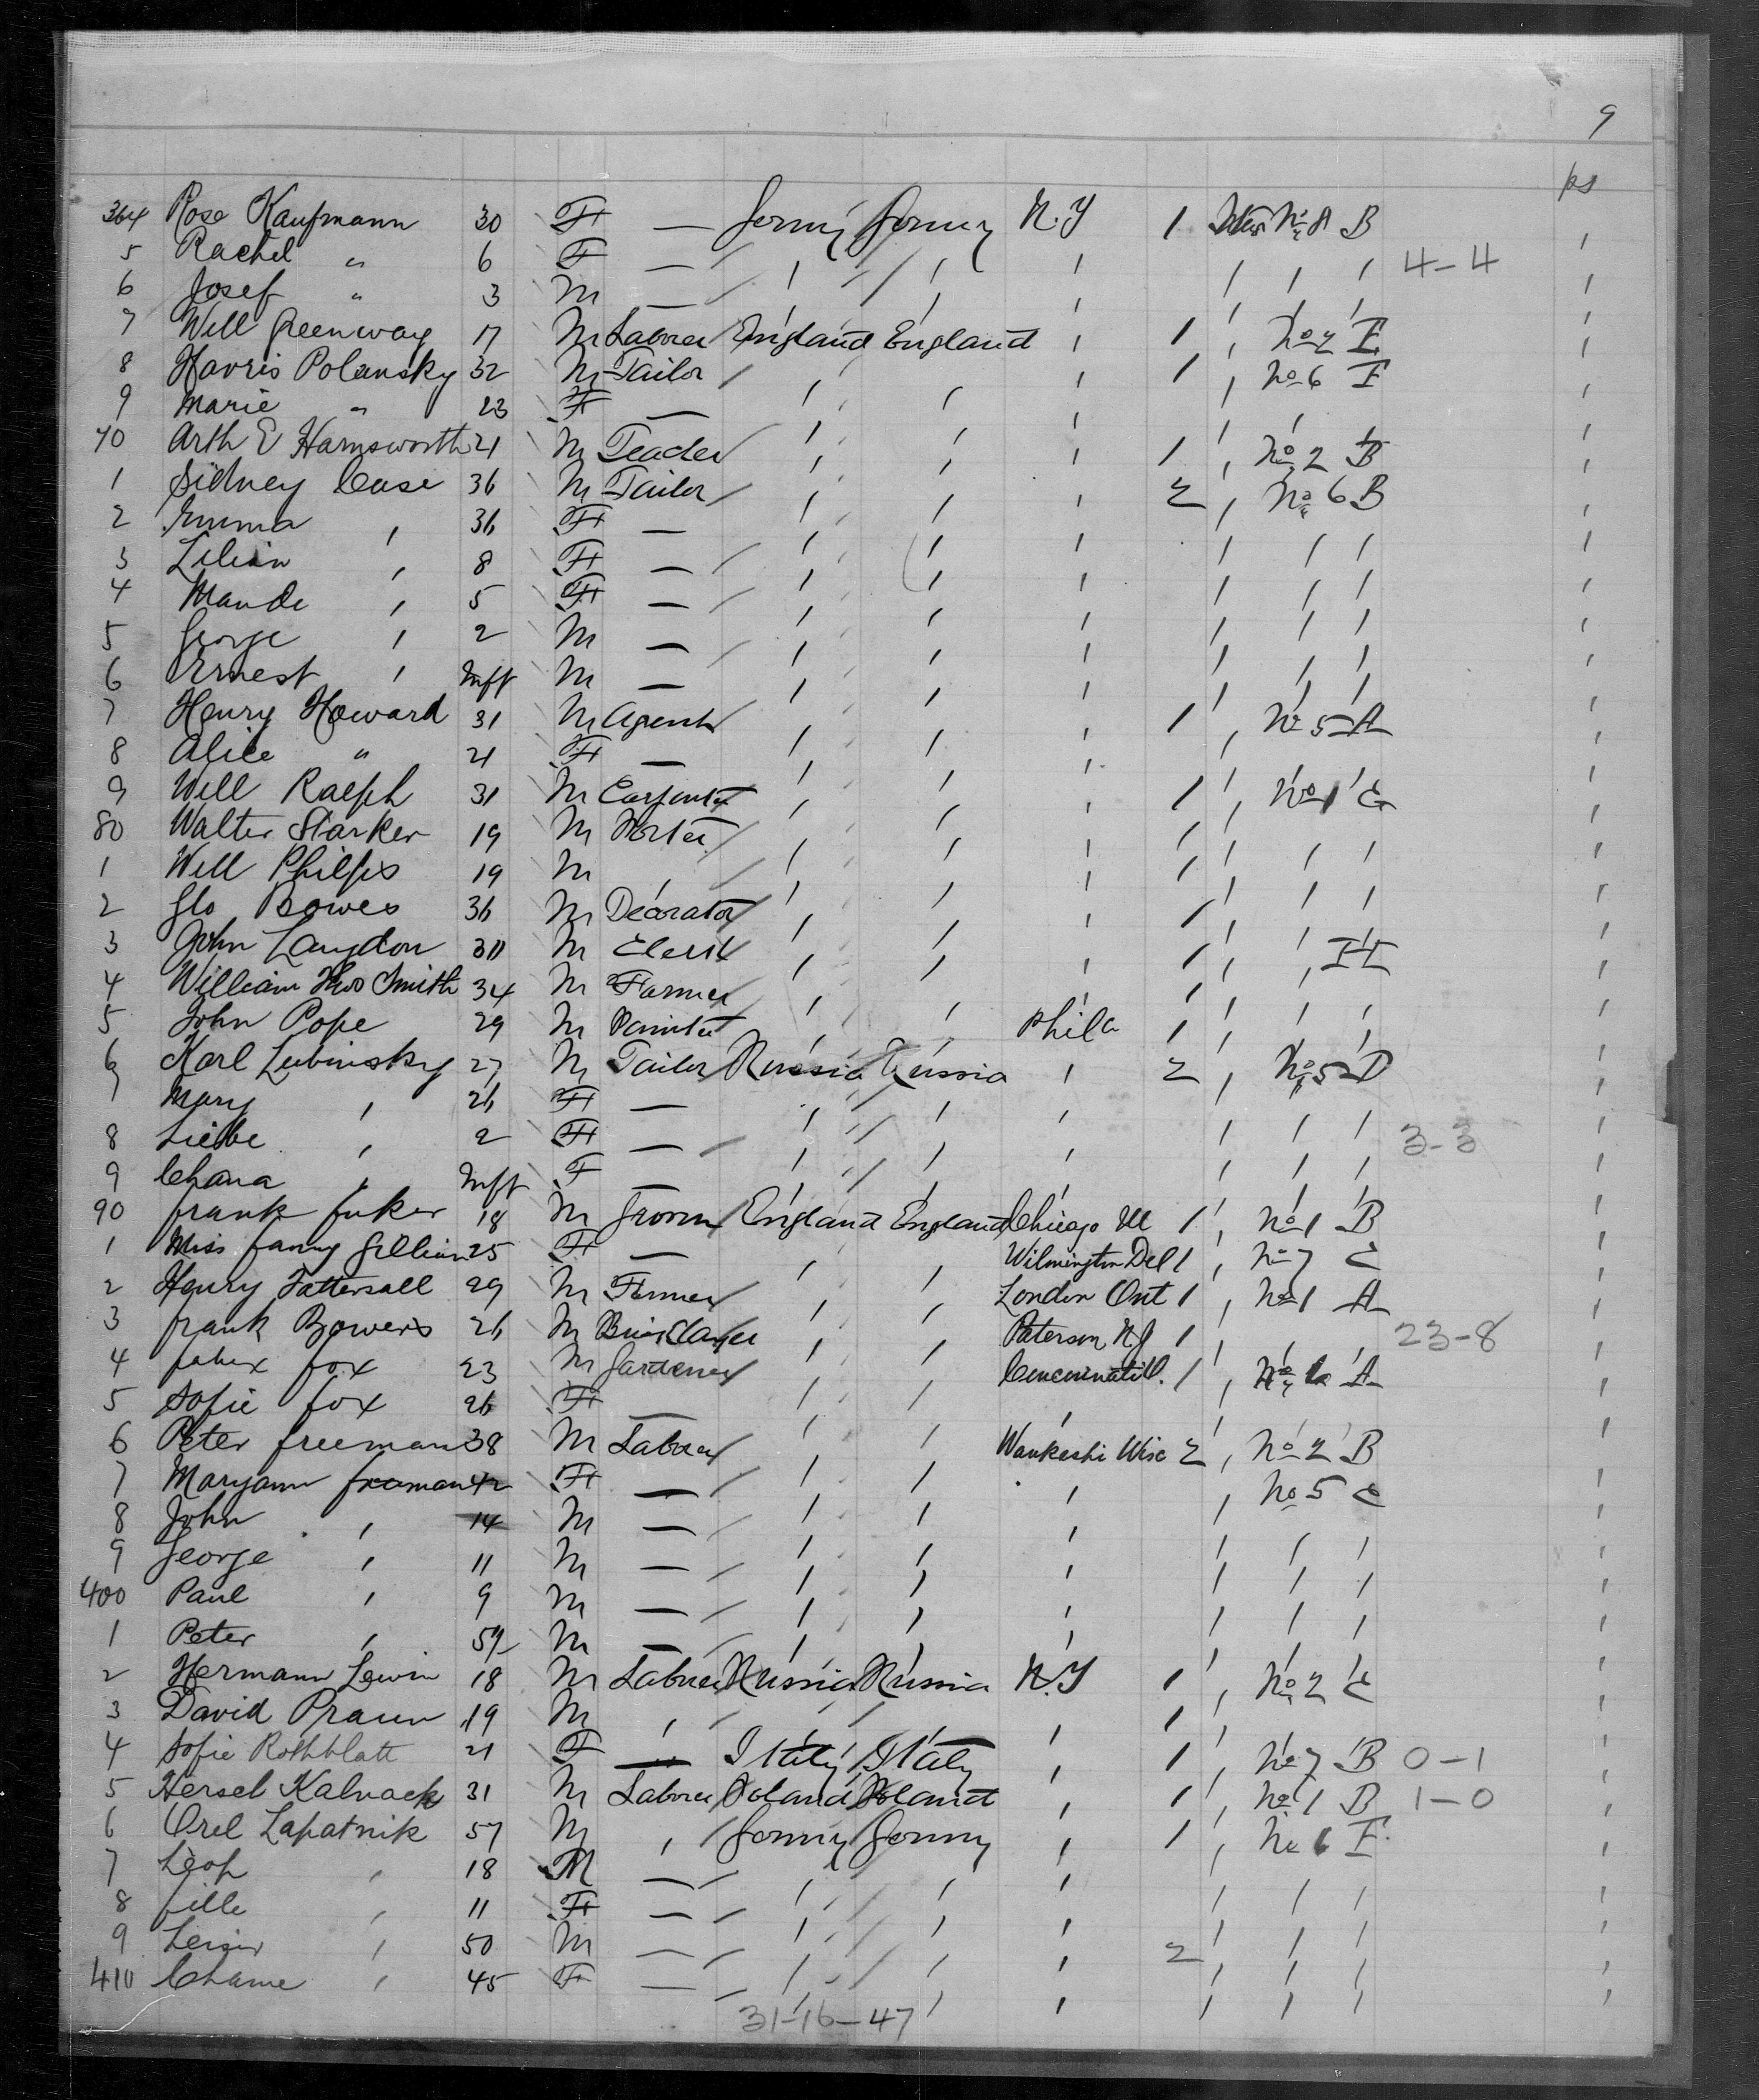 9
ps
364 Rose Kaufmann 30 F — Germy Germy N.Y 1 No 8 B
5 Rachel " 6 F — / / / / / / 4-4
6 Josef " 3 M — / / / / / /
7 Will Greenway 17 M Laborer England England / 1 / No 2 E
8 Harris Polansky 32 M Tailor / / / 1 / No 6 F
9 Marie " 23 F — / / /
70 Arth E Harnsworth 21 M / / / 1 / No 2 B
1 Sidney Case 36 M Tailor / / / 2 / No 6 B
2 Emma / 36 F — / / / / / /
3 Lilian / 8 F — / / / / / /
4 Maude / 5 F — / / / / / /
5 George / 2 M — / / / / / /
6 Ernest / Inft M — / / / / / /
7 Henry Howard 31 M Agent / / / 1 / No 5 A
8 Alice " 21 F — / / /
9 Will Ralph 31 M Carpenter / / / 1 / No 1 C
80 Walter Starker 19 M Porter / / / 1 / / /
1 Will Philps 19 M / / / / 1 / / /
2 Geo Bowes 36 M Decorator / / / 1 / / /
3 John Langdon 30 M Clerk / / / 1 / /
4 William Smith 34 M Farmer / / / 1 / / /
5 John Pope 29 M Painter / / Phila 1 / / /
6 Karl Lubinsky 27 M Tailor Russia Russia / 2 / No 5 D
7 Mary / 26 F — / / / / / /
8 Liebe / 2 F — / / / / / / 3-3
9 Chana / Inft F — / / / / / /
90 Frank 18 M Groom England England Chicago Ill 1 / No 1 B
1 Miss Fanny Gillian 25 F — / / Wilmington Del 1 / No 7 C
2 Henry Tattersall 29 M Farmer / / London Ont 1 / No 1 A
3 Frank Bowers 26 M / / Paterson N.J 1 / / / 23-8
4 Fox 23 M Gardener / / Cincinnati O. 1 / No A
5 Sofie Fox 26 F — / / /
6 Peter Freeman 38 M Laborer / / Waukeshi Wisc 2 / No 2 B
7 Maryann Freeman 42 F — / / / / No 5 C
8 John / 14 M — / / / / / /
9 George / 11 M — / / / / / /
400 Paul / 9 M — / / / / / /
1 Peter / M — / / / / / /
2 Hermann Lewin 18 M Laborer Russia Russia N.Y 1 / No 2 C
3 David Praun 19 M / / / / 1
4 Sofie Rothblatt 21 F — Italy Italy / 1 / No 7 B 0-1
5 Hersch Kalnack 31 M Laborer Poland Poland / 1 / No 1 B 1-0
6 Orel Lapatnik 57 M / Germy Germy / 1 / No 6 F
7 / 18 M — / / / / / /
8 Fille / 11 F — / / / / / /
9 Leiser / 50 M — / / / 2 / / /
410 Chame / 45 F — / / / / / /
31-16-47